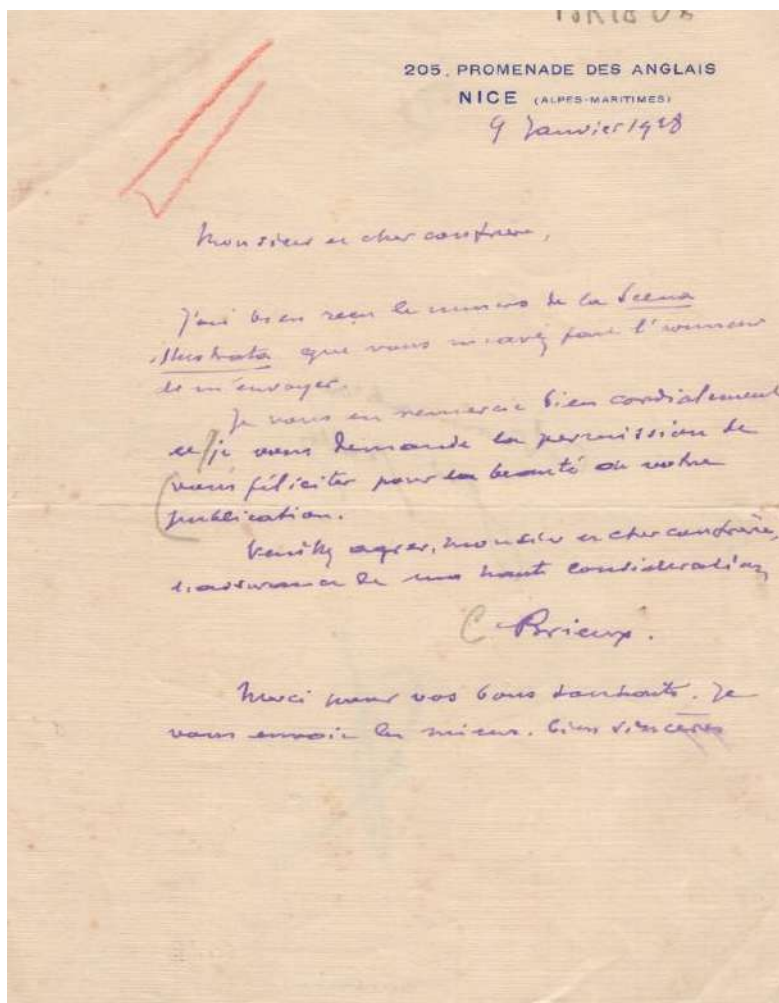 BRIEUX
205, PROMENADE DES ANGLAIS
NICE (ALPES-MARITIMES)
9 Janvier 1928
Monsieur et cher confrère,
J'ai bien reçu le numero de la Scena
illustrata que vous m'avez fait l'honneur
de m'envoyer.
Je vous en remercie bien cordialement
et je vous demande la permission de
vous féliciter pour la beauté de votre
publication.
Veuillez agréer, Monsieur et cher confrère,
l'assurance de ma haute consideration
Brieux.
Merci pour vos bons souhaits. Je
vous envoie les miens. bien sincères